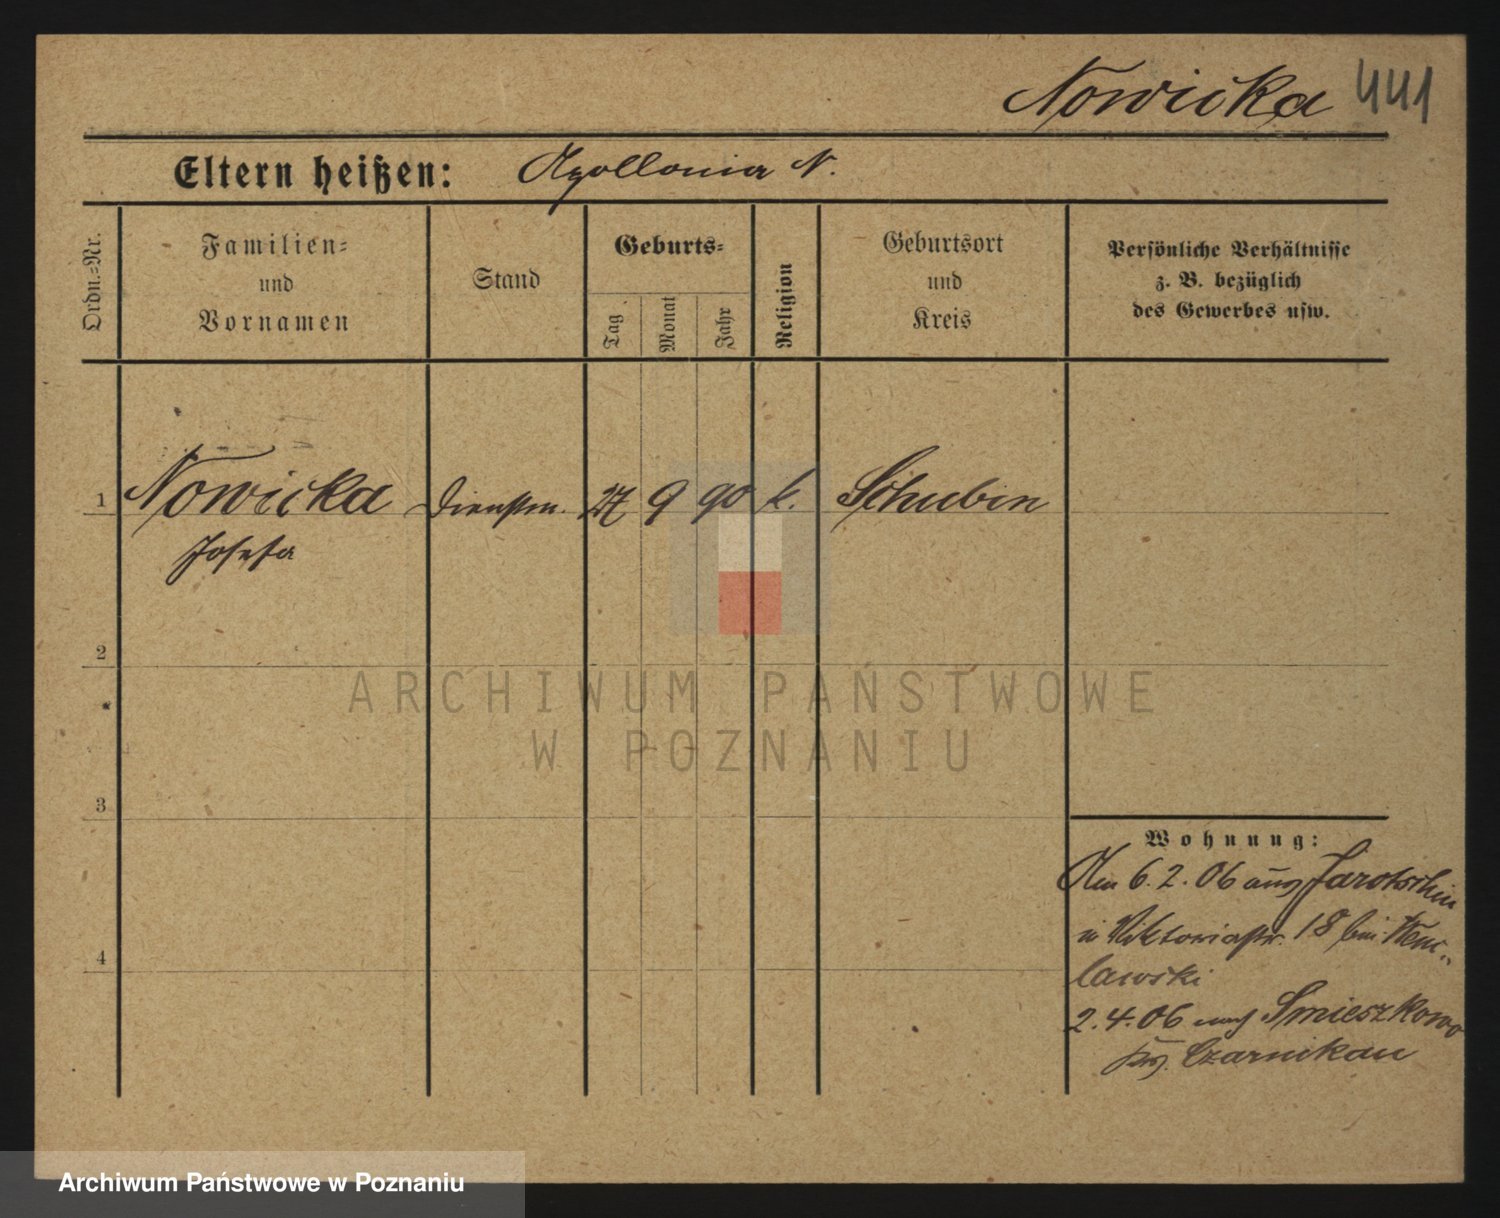 Nowicka 441
Eltern heißen: Apollonia N.
Ordn.=Nr.
Familien=
und
Vornamen
Stand
Geburts=
Tag
Monat
Jahr
Religion
Geburtsort
und
Kreis
Persönliche Verhältnisse
z. B. bezüglich
des Gewerbes usw.
1 Nowicka Dienstm. 27 9 90 k. Schubin
Josefa
2
3
4
Wohnung:
Am 6.2.06 aus Jarotschin
in Viktoriastr. 18 bei
lawski
2.4.06 nach Smieszkowo
Czarnikau
ARCHIWUM PAŃSTWOWE
W POZNANIU
Archiwum Państwowe w Poznaniu